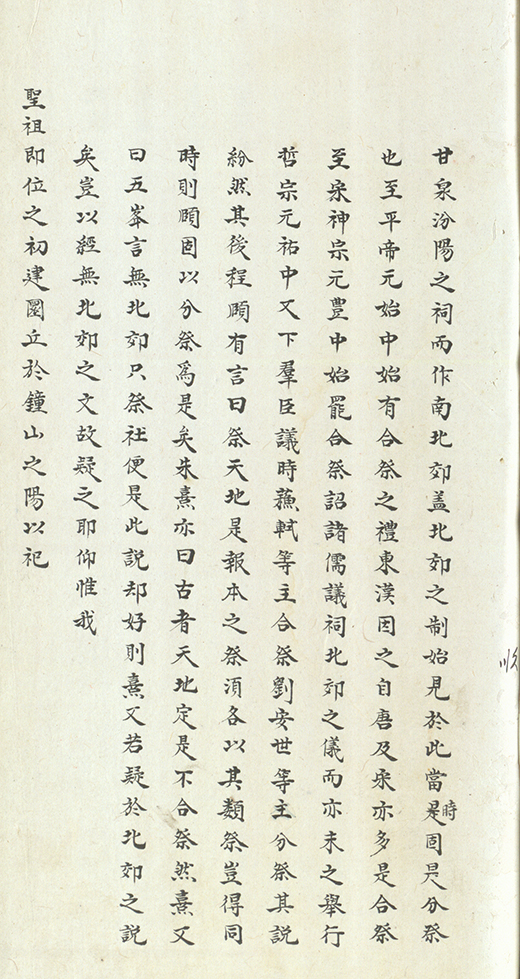 甘泉汾陽之祠而作南北郊盖北郊之制始見於此當是時固是分祭
也至平帝元始中始有合祭之禮東漢因之自唐及宋亦多是合祭
至宋神宗元豊中始罷合祭詔諸儒議祠北郊之儀而亦未之舉行
哲宗元祐中又下羣臣議時蘓軾等主合祭劉安世等主分祭其説
紛然其後程頥有言曰祭天地是報本之祭須各以其類祭豈得同
時則頥固以分祭爲是矣朱熹亦曰古者天地定是不合祭然熹又
曰五峯言無北郊只祭社便是此説却好則熹又若疑於北郊之説
矣豈以經無北郊之文故疑之耶仰惟我
聖祖即位之初建圜丘於鐘山之陽以祀